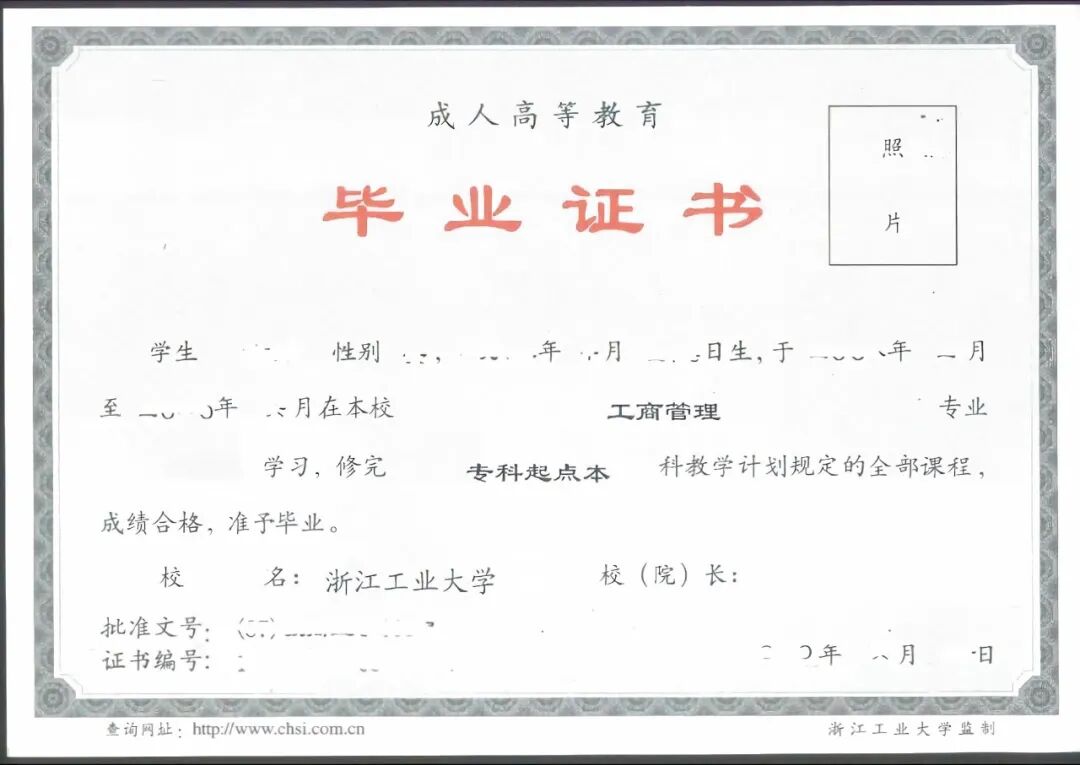 成人高等教育
照
片
毕业证书
学生 性别 年 月 日生,于 年 月
至 年 月在本校 工商管理 专业
学习,修完 专科起点本 科教学计划规定的全部课程,
成绩合格,准予毕业。
校 名:浙江工业大学 校(院)长:
批准文号:
证书编号:
年 月 日
查询网址:http://www.chsi.com.cn 浙江工业大学监制